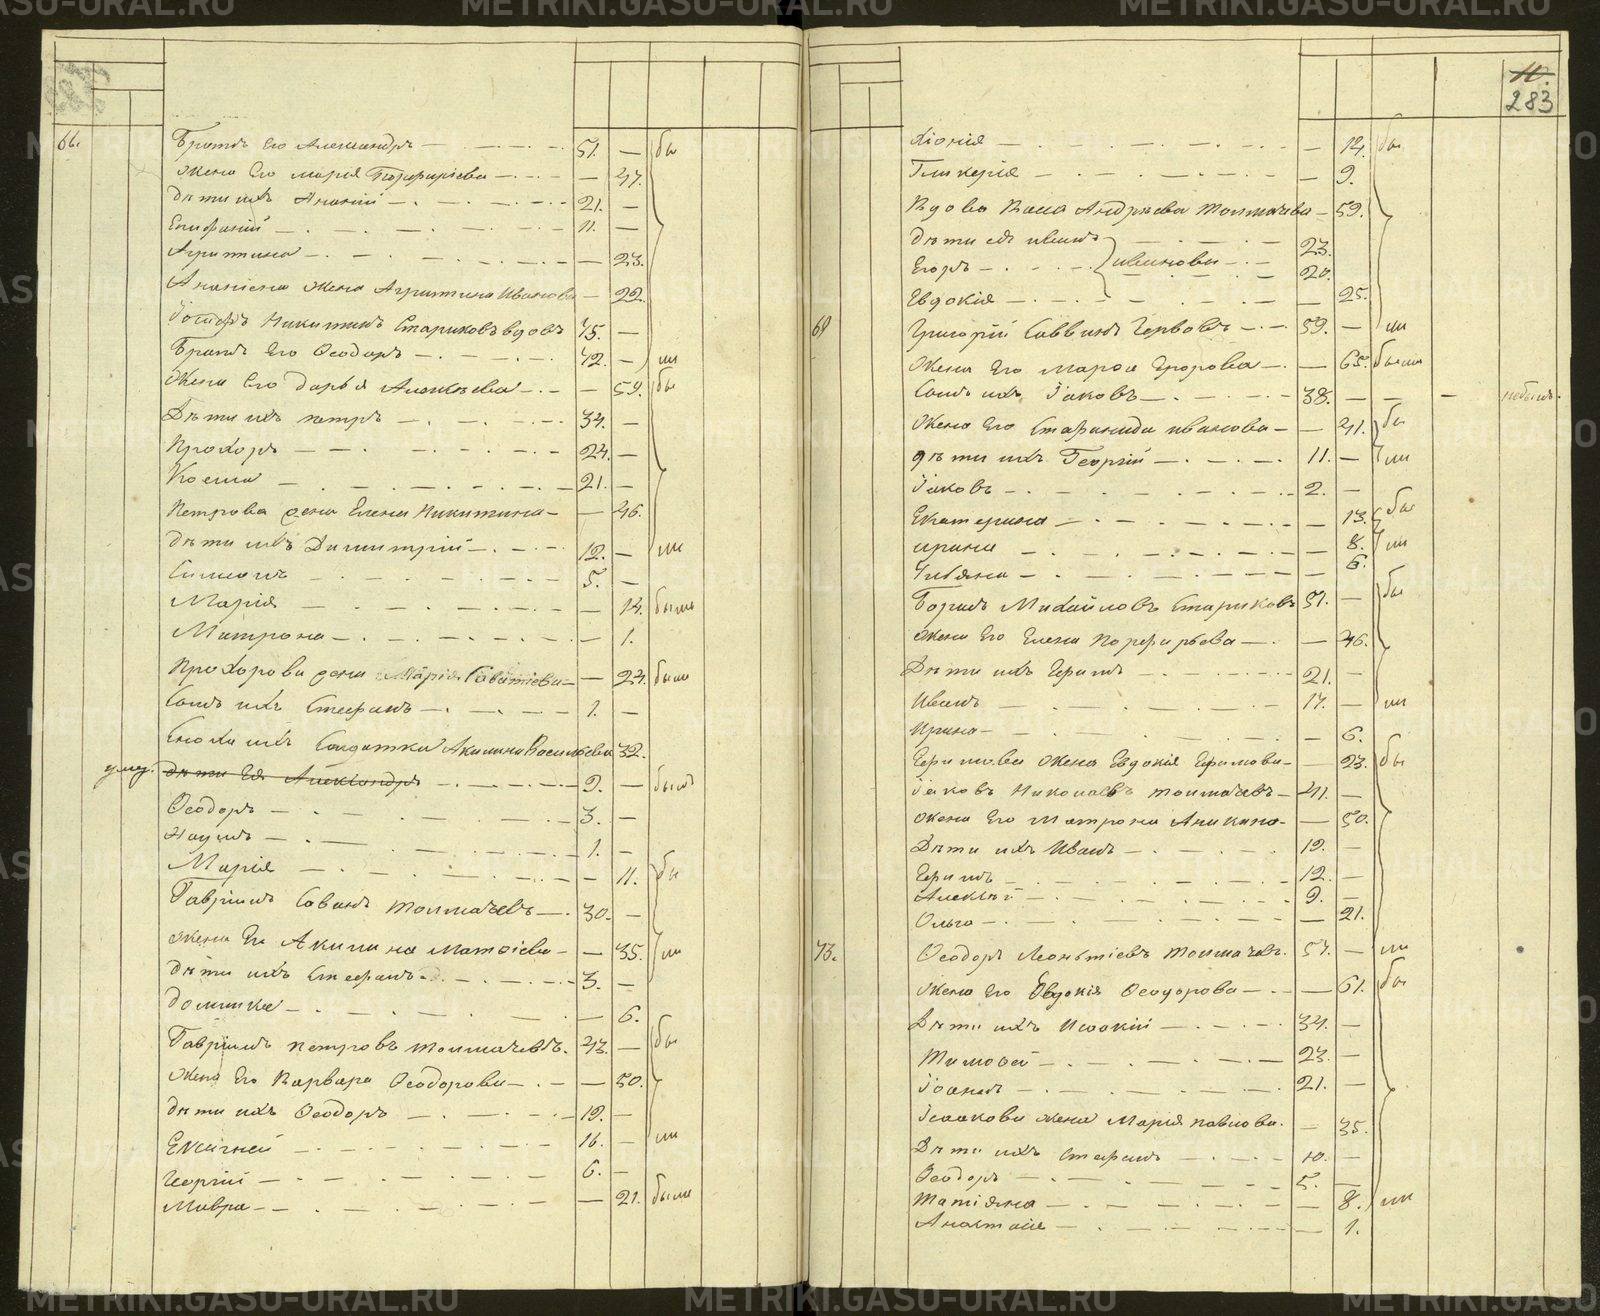 66. Братъ Его Александръ 51. — бы
Жена Его Марія Порфиріева — 47.
Дѣти ихъ Ананій 21. —
Епифаній 11. —
Агрипина — 23.
Ананіева жена Агрипина Иванова — 22.
Іосифъ Никитинъ Стариковъ вдовъ 45. —
Братъ Его Ѳеодоръ 42. — ли
Жена Его Дарья Алексѣева — 59. бы
Дѣти ихъ Петръ 34. —
Прохоръ 24. —
Косма 21. —
Петрова жена Елена Никитина — 46.
Дѣти ихъ Димитрій 12. — ли
Симеонъ 5. —
Марія — 14. были
Матрона — 1.
Прохорова жена Марія Саватіева — 24. была
Сынъ ихъ Стефанъ 1. —
Сноха ихъ Солдатка Акилина Васильева 32.
умер. Дѣти Ея Александръ 9. — былъ
Ѳеодоръ 3. —
Наумъ 1. —
Марія — 11. бы
Гавріилъ Савинъ Толмачевъ 30. —
Жена Его Акилина Матѳіева — 35. ли
Дѣти ихъ Стефанъ 3. —
Домника — 6.
Гавріилъ Петровъ Толмачевъ 43. — бы
Жена Его Варвара Ѳеодорова — 50.
Дѣти ихъ Ѳеодоръ 19. —
Евгеній 16. — ли
Георгій 6. —
Мавра — 21. были
11.
283
Хіонія — 14. бы
Гликерія — 9.
Вдова Васса Андрѣева Толмачева — 59.
Дѣти ея Иванъ 23.
Егоръ Ивановы 20.
Евдокія — 25.
68 Григорій Саввинъ 59. — ли
Жена Его Марѳа Егорова — 65. были
Сынъ ихъ Іаковъ 38. — — — небылъ.
Жена Его Стефанида Иванова — 41. бы
Дѣти ихъ Георгій 11. — ли
Іаковъ 2. —
Екатерина — 13. бы
Ирина — 8. ли
Уліяна — 6.
Борисъ Михайловъ Стариковъ 51. — бы
Жена Его Елена Порфирьева — 46.
Дѣти ихъ Ефимъ 21. —
Иванъ 17. — ли
Ирина — 6.
Ефимова жена Евдокія Ефимова — 23. бы
Іаковъ Николаевъ Толмачевъ 41. —
Жена Его Матрона Аникина — 50.
Дѣти ихъ Иванъ 19. —
Ефимъ 12. —
Алексѣй 9. —
Ольга — 21.
73. Ѳеодоръ Леонтіевъ Толмачевъ 57. — ли
Жена Его Евдокія Ѳеодорова — 61. бы
Дѣти ихъ Исаакій 34. —
Тимоѳей 23. —
Іоаннъ 21. —
Ісаакова жена Марія Павлова — 35.
Дѣти ихъ Стефанъ 10. —
Ѳеодоръ 5. —
Татіяна — 8. ли
Анастасія — 1.